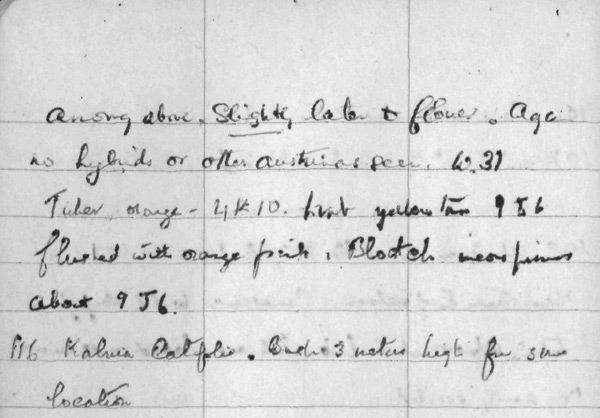 among above. Slightly later to flower. Aga
no hybrids or other austrinas seen. W.37
Tuber, orange - 4K10. but yellow than 9J6
flushed with orange pink. Blotch
about 9J6.
116 Kalmia Latfolia. Bush 3 meters high from same
location